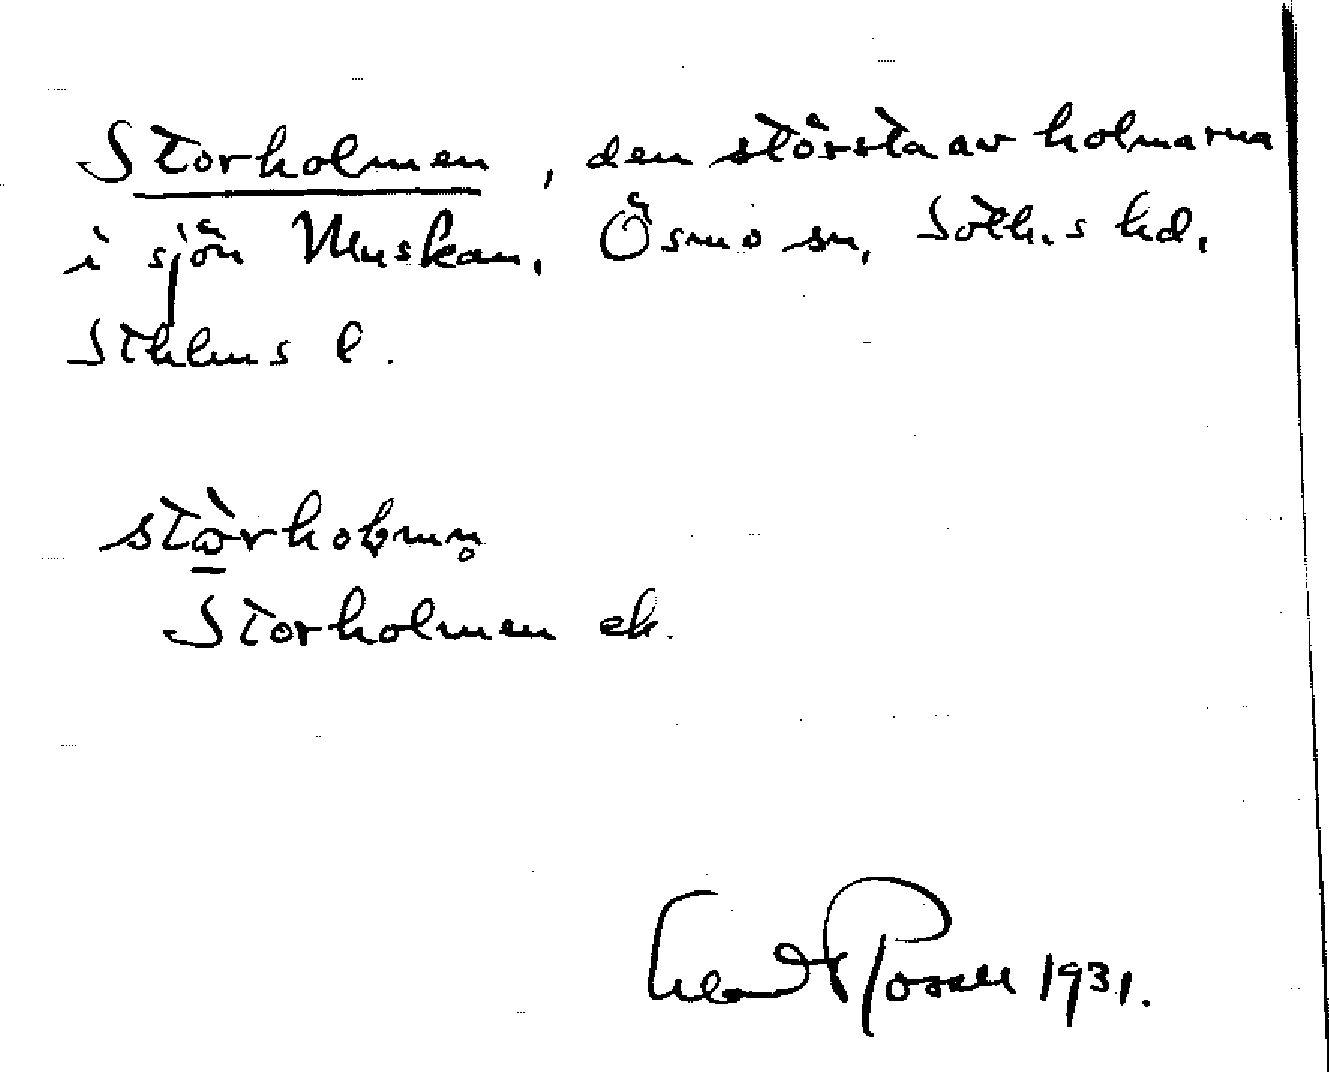 Storholmen, den största av holmarna
i sjön Muskan, Ösmo sn, Soth.s hd,
Sthlms l.
stòrholmn̥
Storholmen ek.
1931.